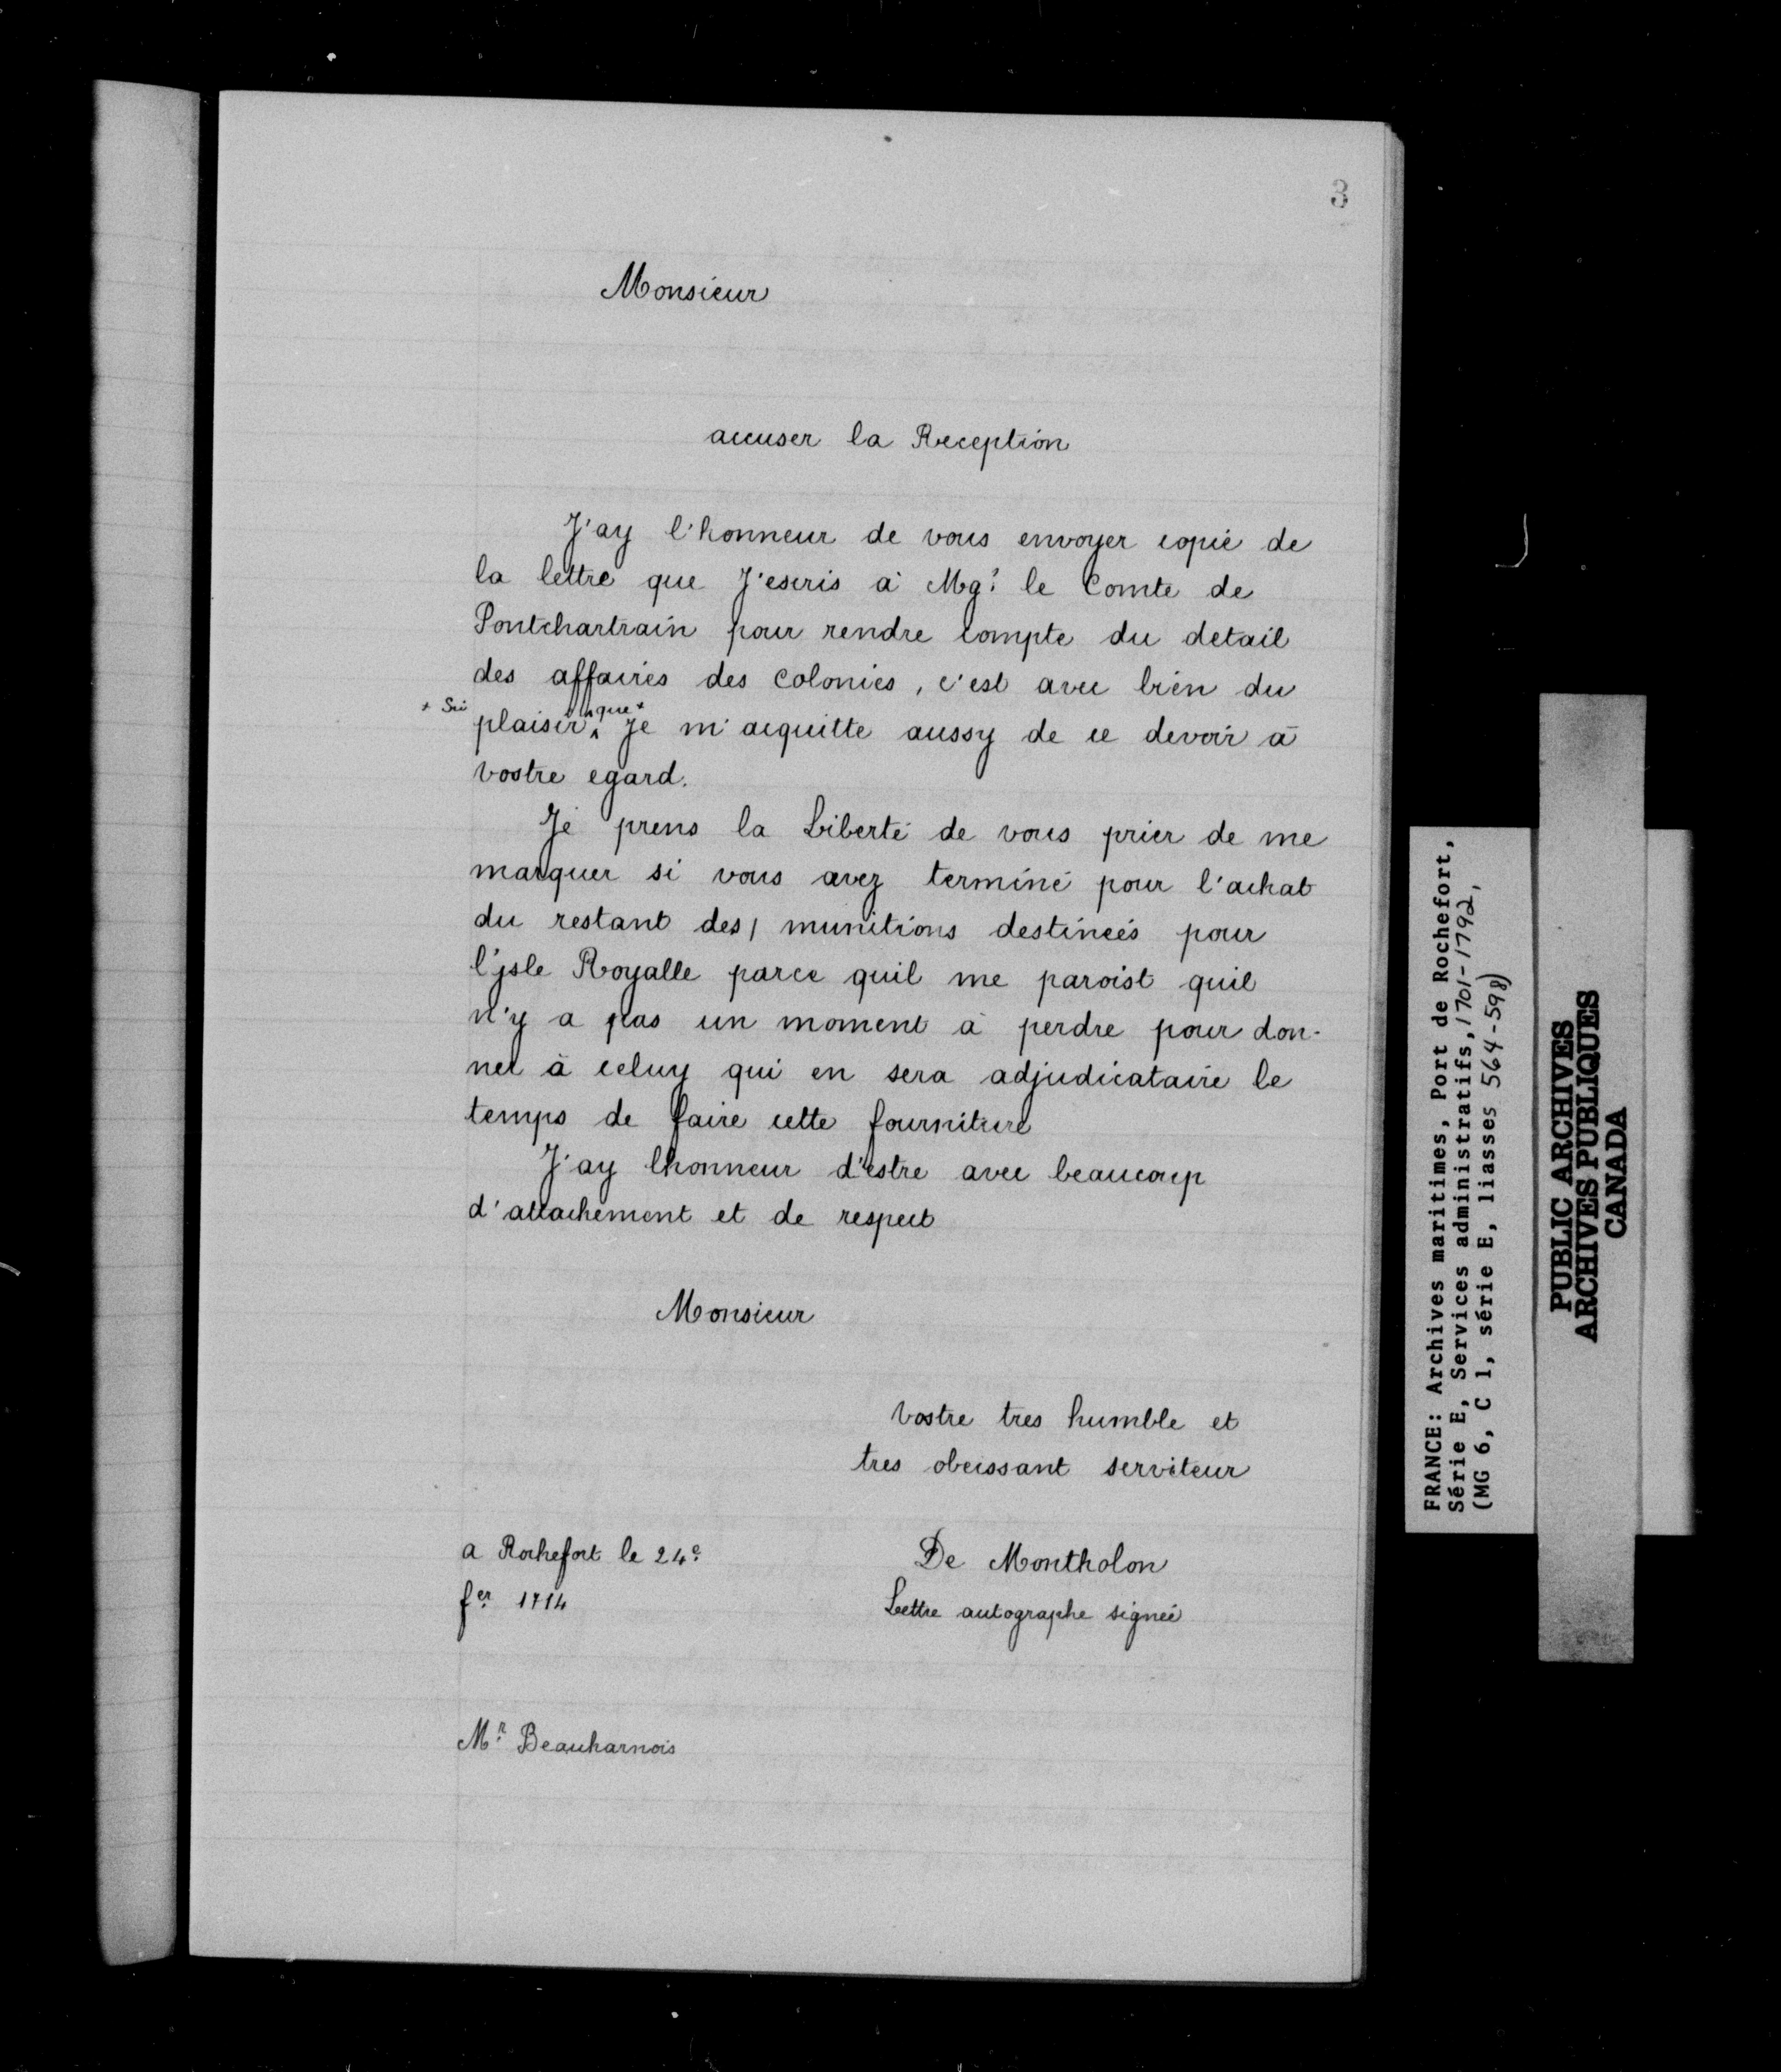 3
Monsieur
accuser la Reception
J'ay l'honneur de vous envoyer copie de
la lettre que J'escris à Mgr le Comte de
Pontchartrain pour rendre compte du detail
des affaires des colonies, c'est avec bien du
+ Sic
que +
plaisir ^ Je m'acquitte aussy de ce devoir à
vostre egard.
Je prens la Liberté de vous prier de me
marquer si vous avez terminé pour l'achat
du restant des munitions destineés pour
l'jsle Royalle parce quil me paroist quil
n'y a pas un moment à perdre pour don-
ner à celuy qui en sera adjudicataire le
temps de faire cette fourniture
J'ay lhonneur d'estre avec beaucoup
d'attachement et de respect
Monsieur
Vostre tres humble et
tres obeissant serviteur
a Rochefort le 24e
fer 1714
De Montholon
Lettre autographe signée
Mr Beauharnois
FRANCE: Archives maritimes, Port de Rochefort,
Série E, Services administratifs, 1701-1792,
(MG 6, C 1, série E, liasses 564-598)
PUBLIC ARCHIVES
ARCHIVES PUBLIQUES
CANADA